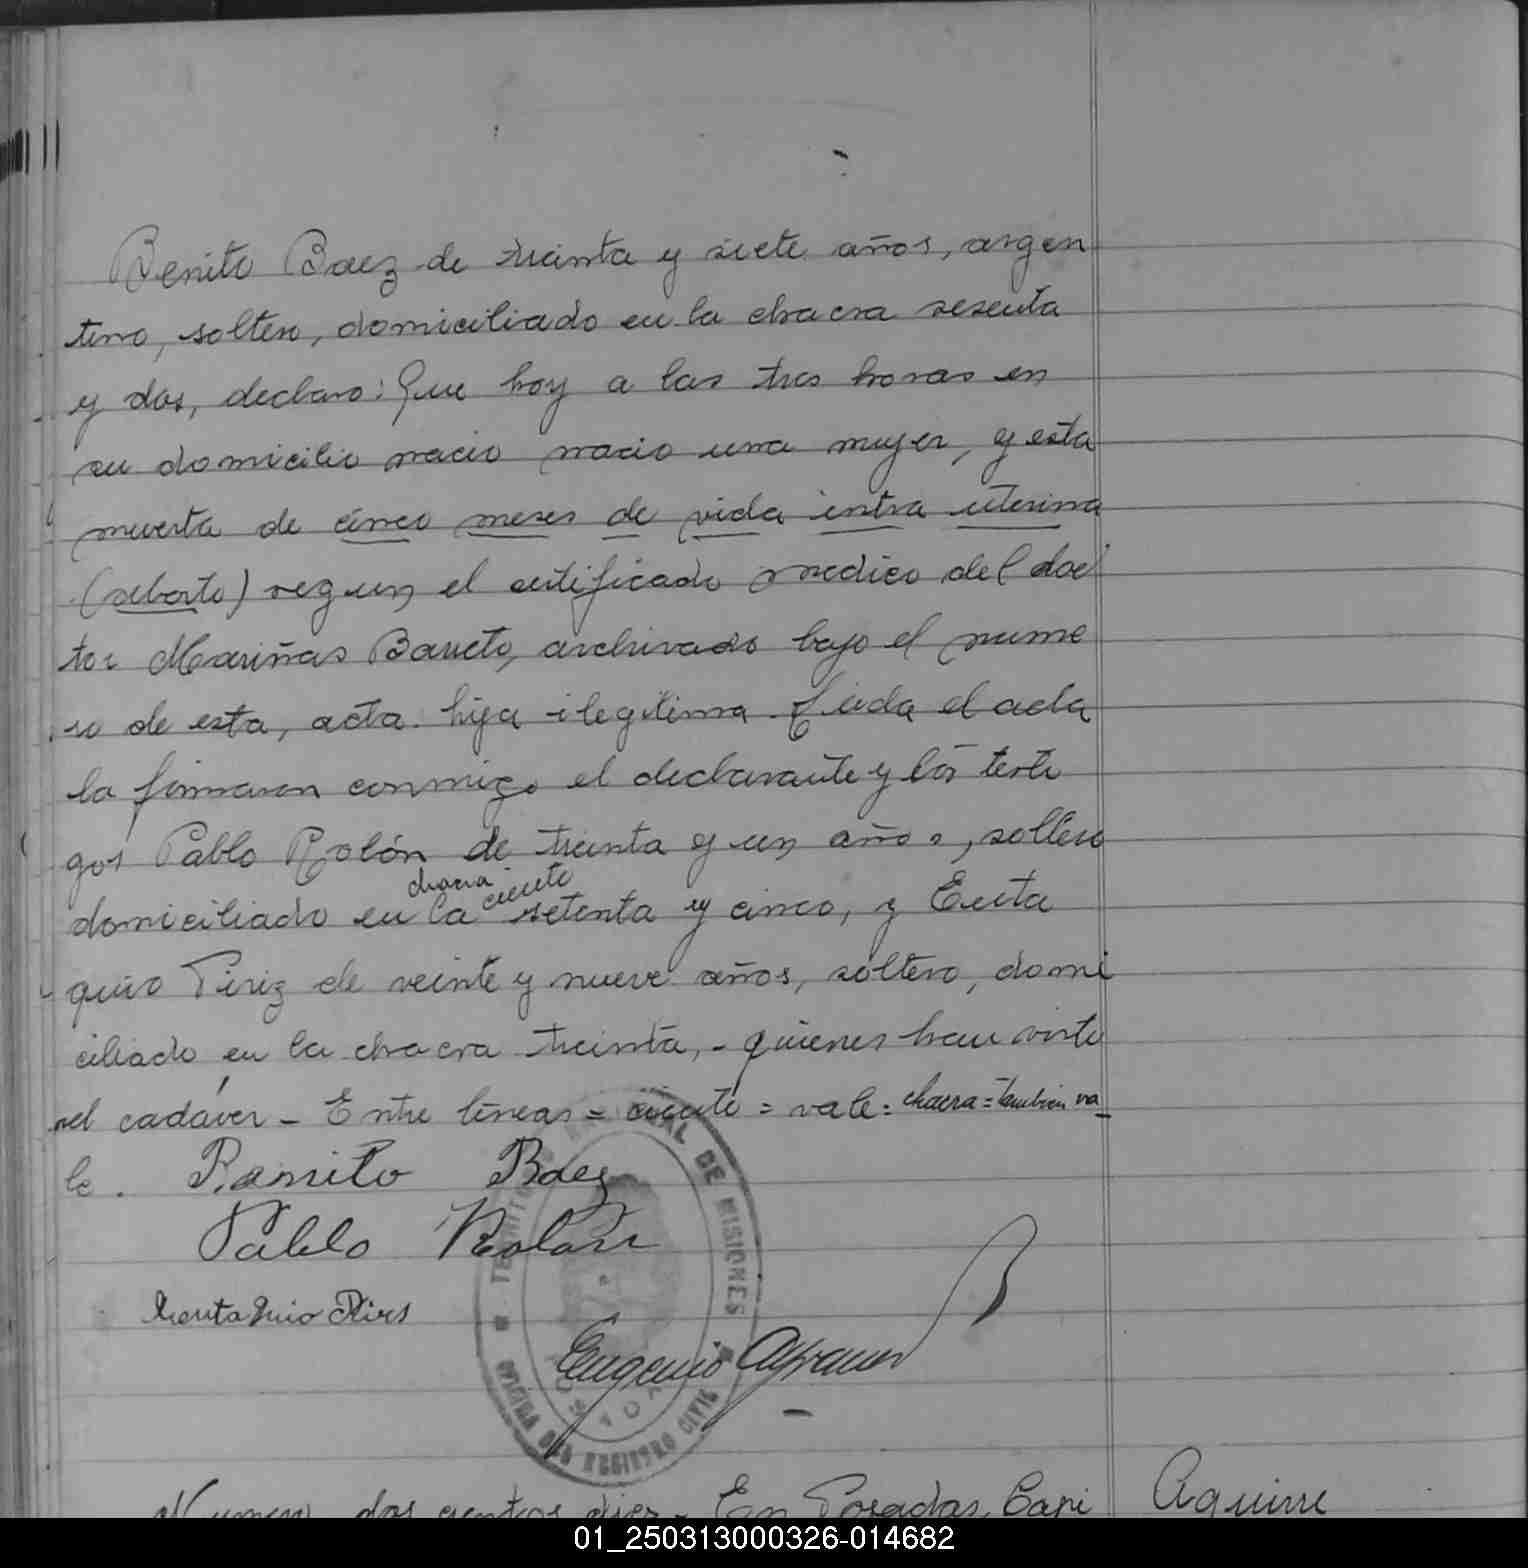 Benito Baez de treinta y siete años, argen
tino, soltero, domiciliado en la chacra sesenta
y dos, declaro: Que hoy a las tres horas en
su domicilio nacio nacio una mujer, y esta
muerta de cinco meses de vida intra uterina
(aborto) segun el certificado medico del doc
tor Mariñas Barreto, archivado bajo el nume
ro de esta, acta hija ilegitima Leida el acta
la firmaron conmigo el declarante y los testi
gos Pablo Rolón de treinta y un años, soltero
chacra ciento
domiciliado en la setenta y cinco, y Eusta
quio Piriz de veinte y nueve años, soltero, domi
ciliado en la chacra treinta, - quienes han visto
el cadáver - Entre lineas = ciento = vale = chacra = tambien va_
le. Ramito Baez
Pablo Rolon
Pires
TERRITORIO NACIONAL DE MISIONES
Eugenio
OFICINA DEL REGISTRO CIVIL
Numero dos cientos diez - En Posadas, Capi
Aguirre
01_250313000326-014682